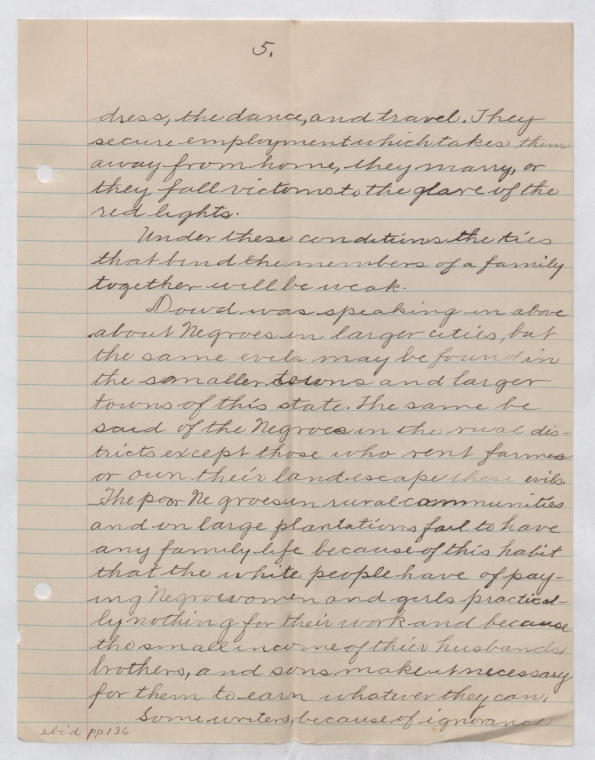 5.
dress, the dance, and travel. They
secure employment which takes them
away from home, they marry, or
they fall victoms to the glare of the
red lights.
Under these conditions the ties
that bind the members of a family
together will be weak.
Dowd was speaking in above
about Negroes in larger cities, but
the same evils may be found in
the smaller towns and larger
towns of this state. The same be
said of the Negroes in the rural dis-
tricts except those who rent farmes
or own their land escape these evils.
The poor Negroes in rural communities
and on large plantations fail to have
any family life because of this habit
that the white people have of pay-
ing Negro women and girls practical-
ly nothing for their work and because
the small income of thier husbands
brothers, and sons make it necessary
for them to earn whatever they can.
Some writers, because of ignorance
ebid pp.136